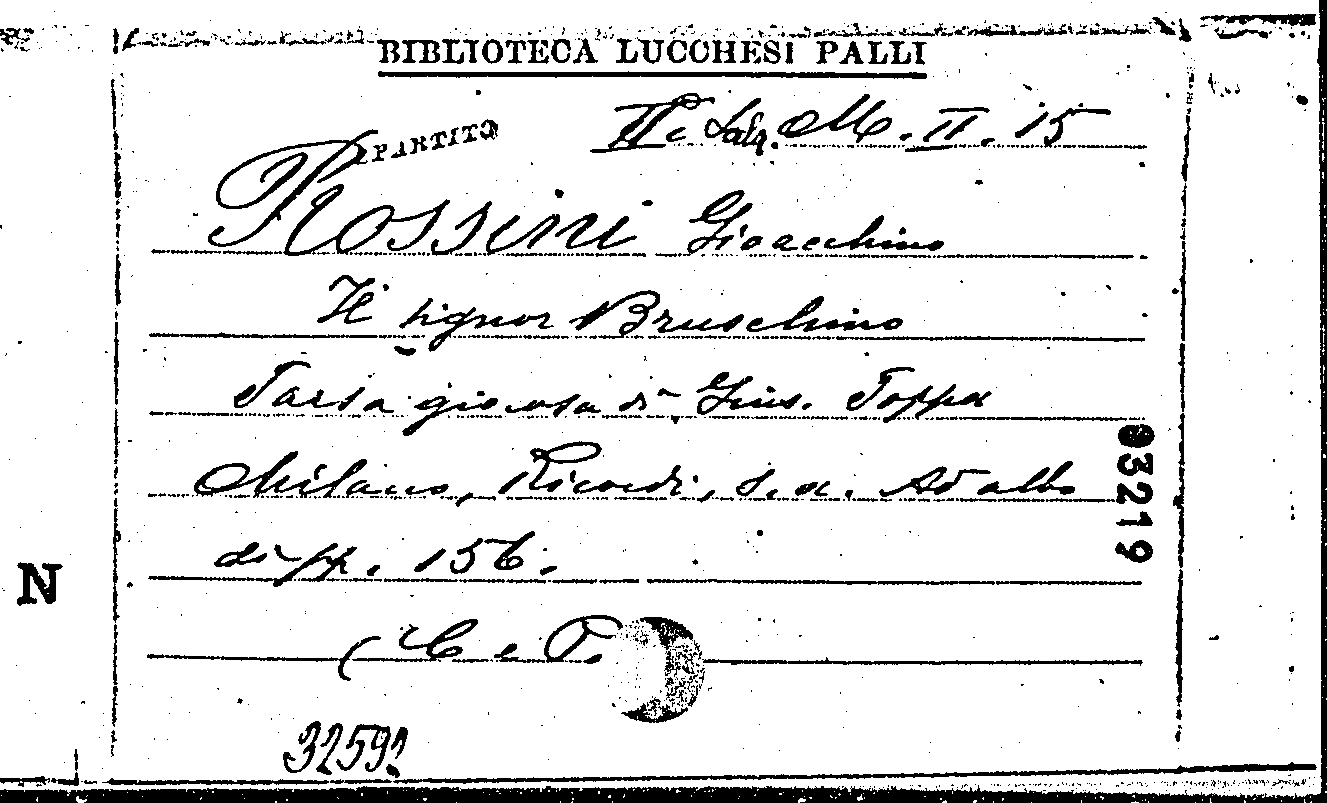 BIBLIOTECA LUCCHESI PALLI
IIa Sala. M. II. 15
SPARTITO
Rossini Gioacchino
Il signor Bruschino
Farsa giocosa di Gius. Foppa
Milano, Ricordi, s. a. Ad albo
di pp. 156.
(C e P.
83219
N
32592